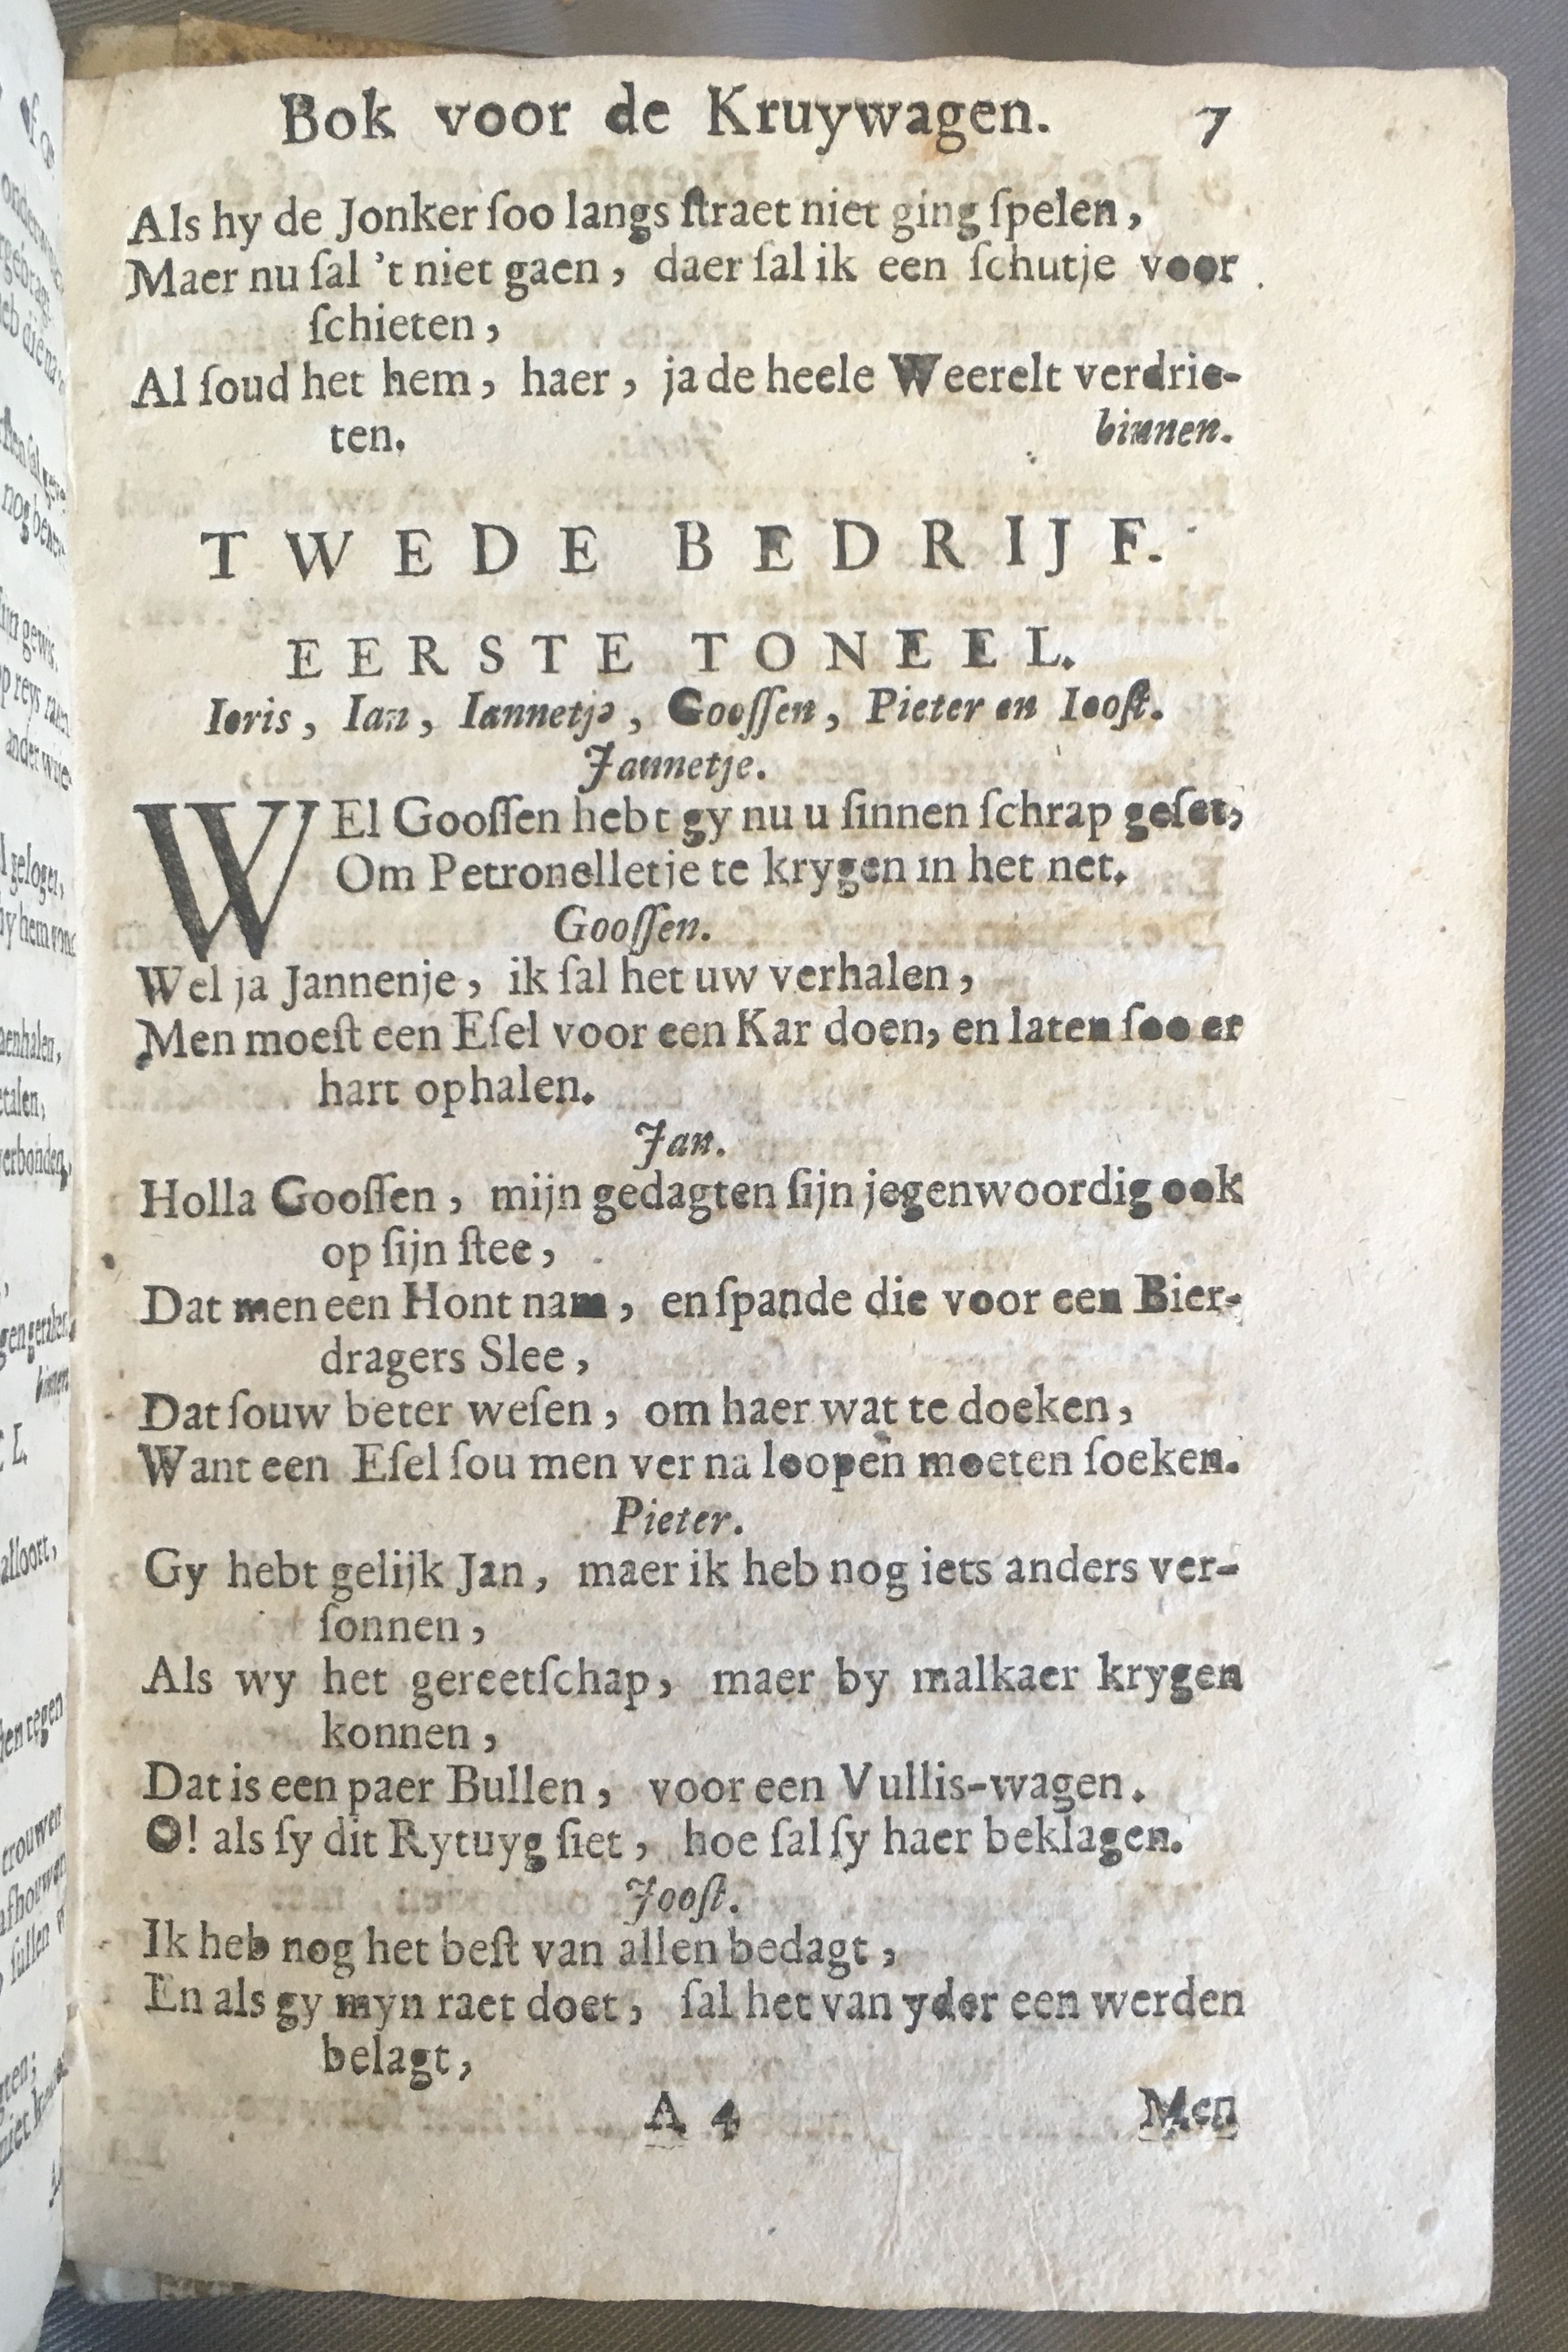 Bok voor de Kruywagen. 7
Als hy de Jonker ſoo langs ſtraet niet ging ſpelen,
Maer nu ſal 't niet gaen, daer ſal ik een ſchutje voor
ſchieten,
Al ſoud het hem, haer, ja de heele Weerelt verdrie-
ten. binnen.
TWEDE BEDRIJF.
EERSTE TONEEL.
Ioris, Ian, Iannetje, Gooſſen, Pieter en Iooſt.
Jannetje.
WEl Gooſſen hebt gy nu u ſinnen ſchrap geſet,
Om Petronelletje te krygen in het net.
Gooſſen.
Wel ja Jannenje, ik ſal het uw verhalen,
Men moeſt een Eſel voor een Kar doen, en laten ſoo er
hart ophalen.
Jan.
Holla Gooſſen, mijn gedagten ſijn jegenwoordig ook
op ſijn ſtee,
Dat men een Hont nam, en ſpande die voor een Bier-
dragers Slee,
Dat ſouw beter weſen, om haer wat te doeken,
Want een Eſel ſou men ver na loopen moeten ſoeken.
Pieter.
Gy hebt gelijk Jan, maer ik heb nog iets anders ver-
ſonnen,
Als wy het gereetſchap, maer by malkaer krygen
konnen,
Dat is een paer Bullen, voor een Vullis-wagen.
O! als ſy dit Rytuyg ſiet, hoe ſal ſy haer beklagen.
Jooſt.
Ik heb nog het beſt van allen bedagt,
En als gy myn raet doet, ſal het van yder een werden
belagt,
A 4 Men